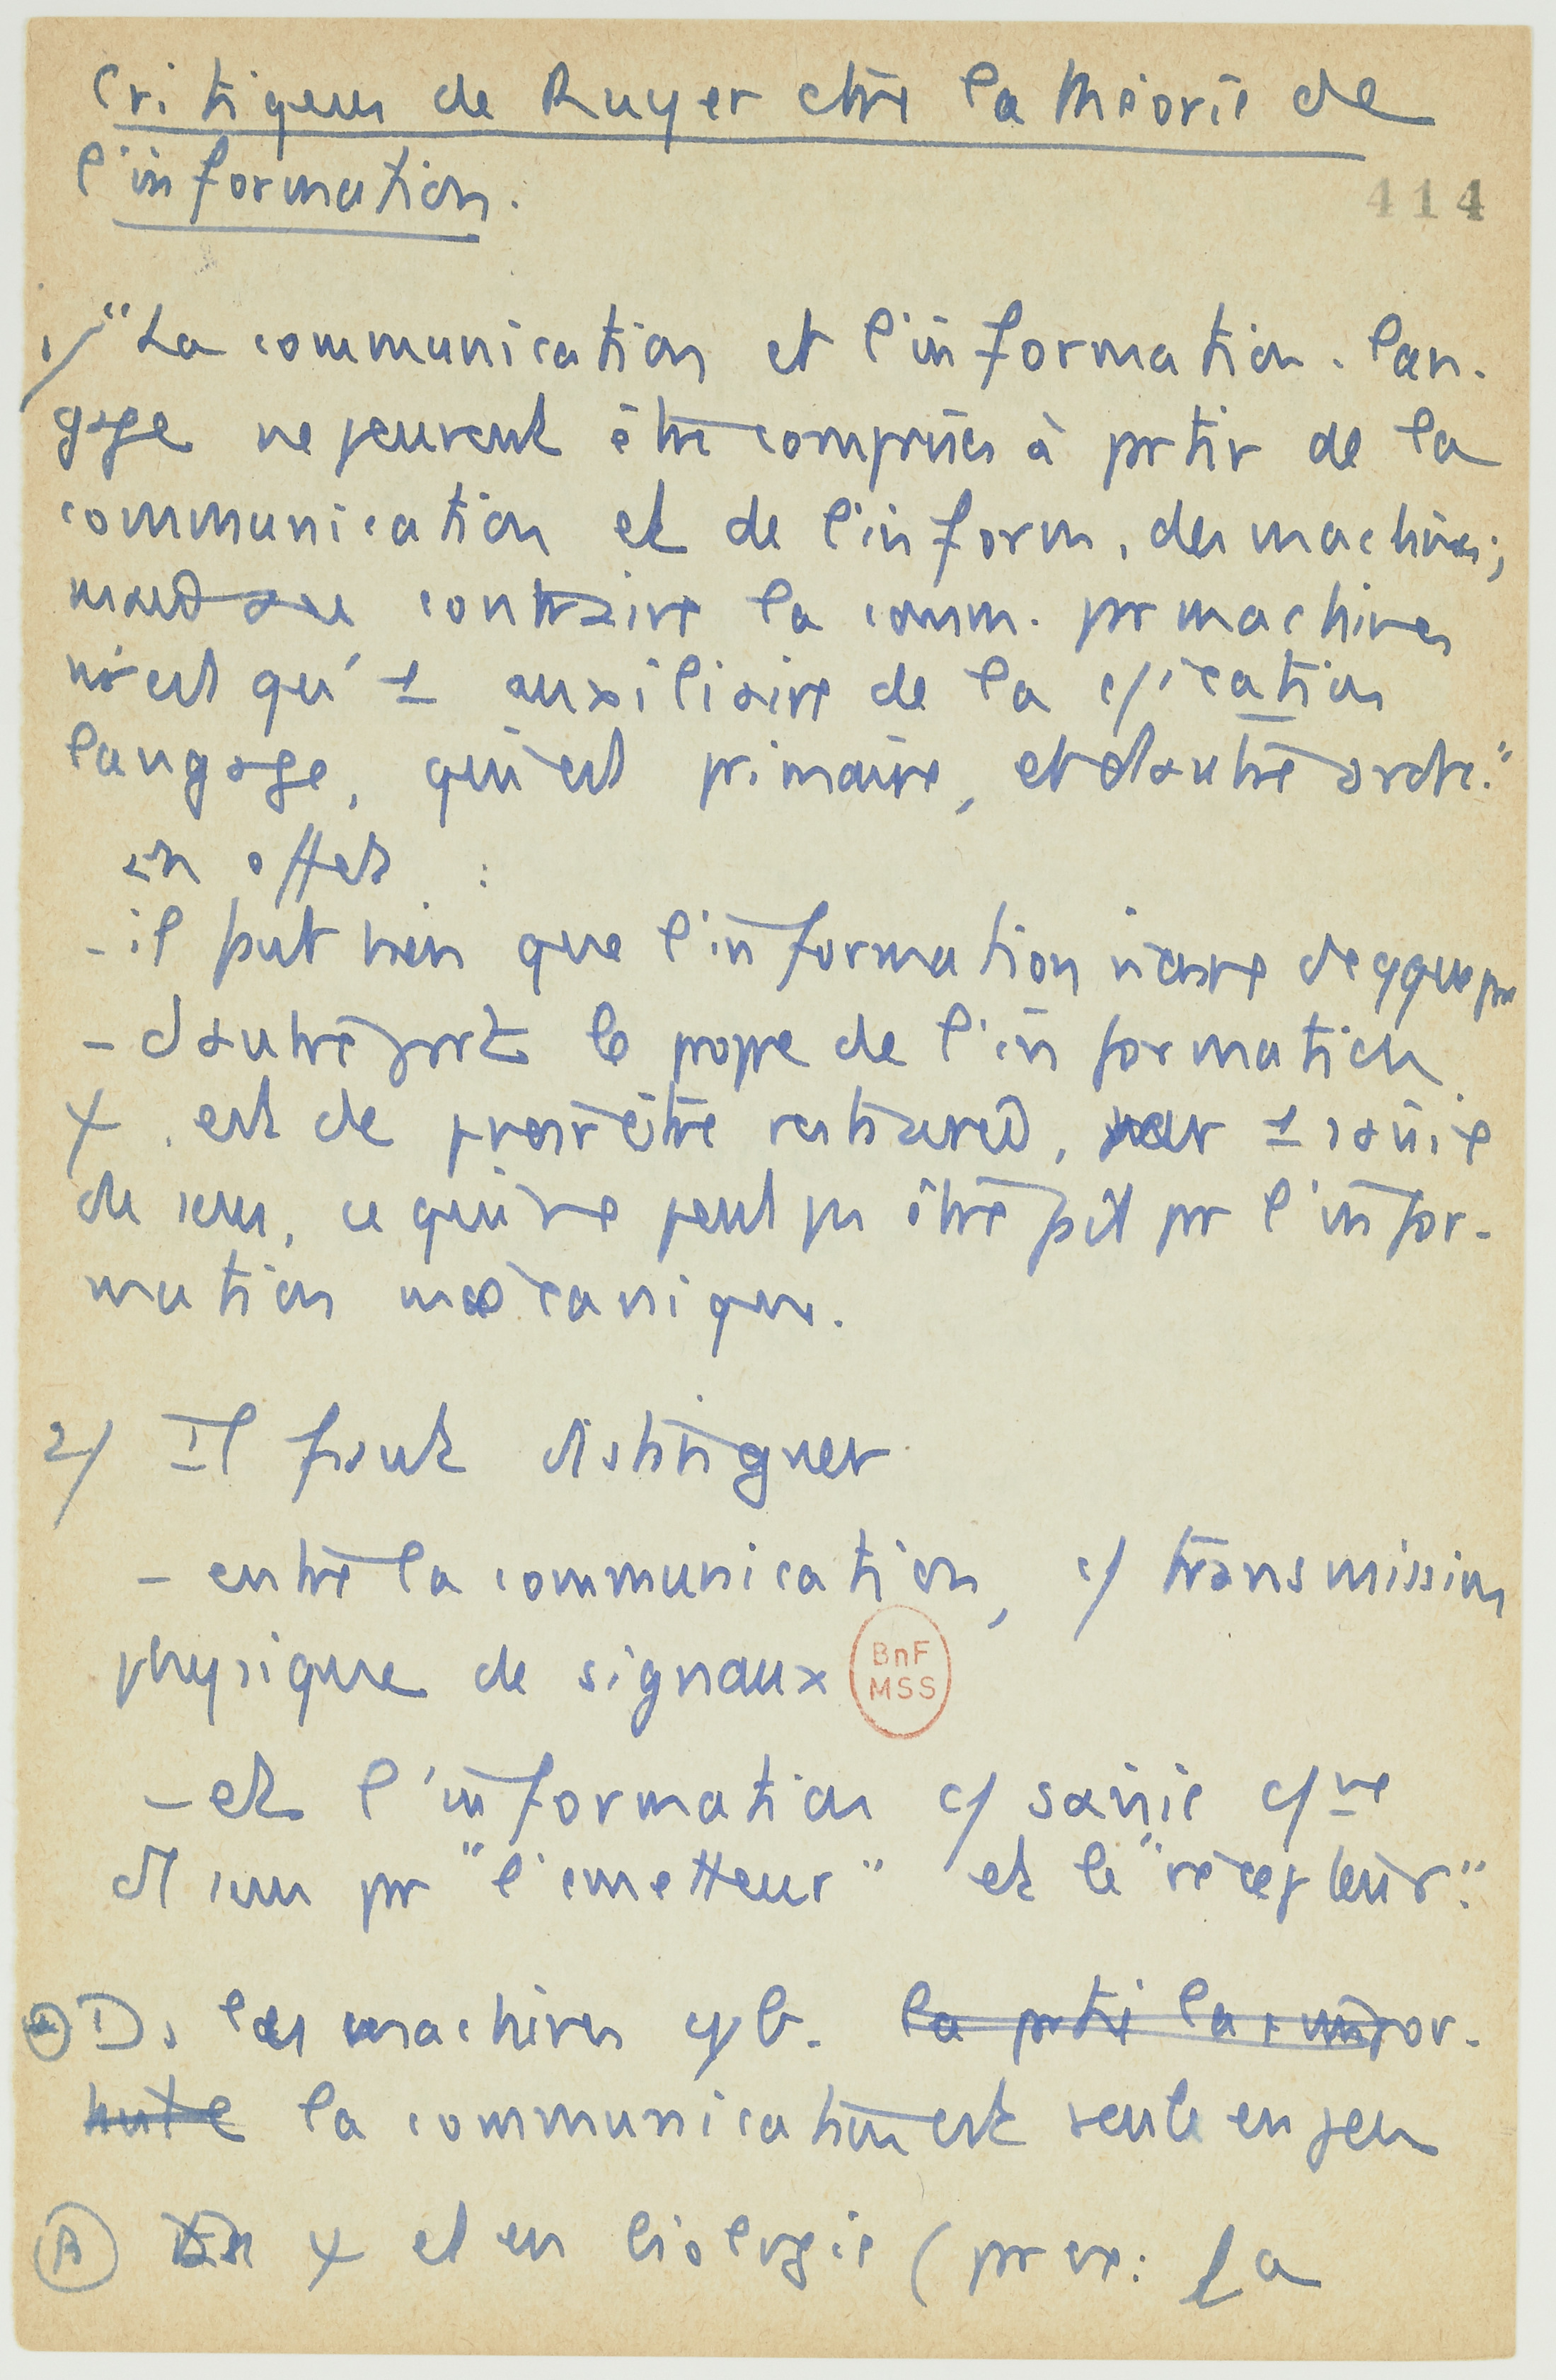 Critiques de Ruyer ctre la théorie de
l'information.
414
1/ "La communication et l'information-lan-
gage ne peuvent être comprises à prtir de la
communication et de l'inform. des machines;
au contraire la comm. pr machines
n'est qu'1 auxiliaire de la c/ication
langage, qui est primaire, et d'autre ordre."
en effet :
- il faut bien que l'information vienne de qque pt
- d'autre part le propre de l'information
est de pouvoir être , 1 saisie
de sens, ce qui ne peut pas être fait pr l'infor-
mation mécanique.
2/ Il faut distinguer
- entre la communication, c/ transmission
physique de signaux
BnF
MSS
- et l'information c/ saisie c/ne
d'1 sens pr "l'émetteur" et le "récepteur".
Ds les machines cyb. la prtie la + impor-
tante la communication est seule en jeu
B et en biologie (pr ex: la